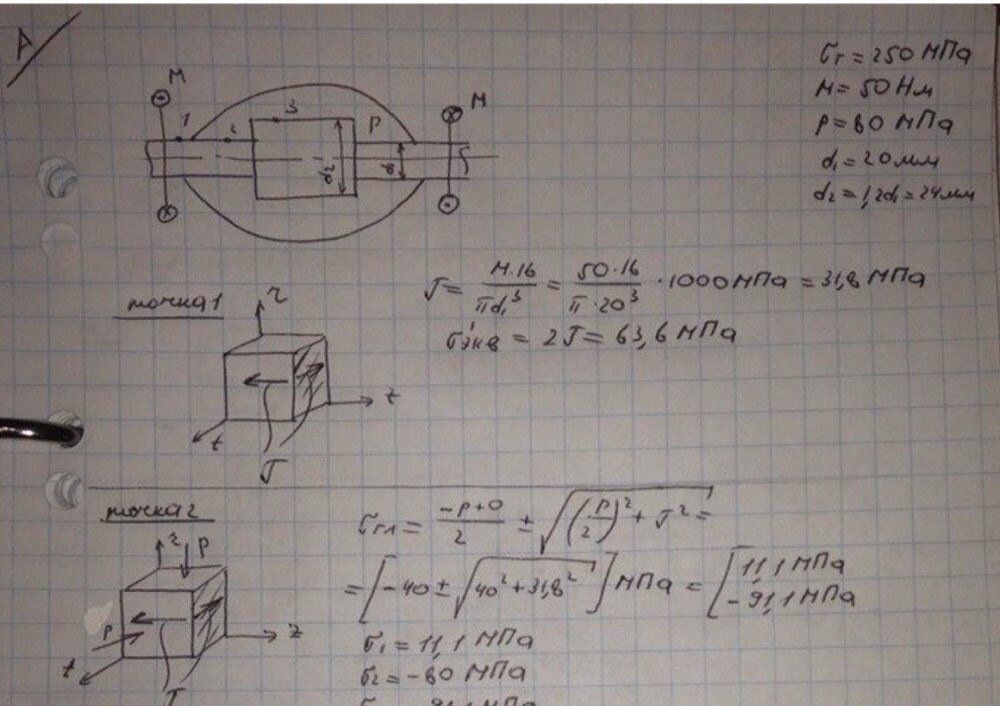 A/
M
M
1
2
3
P
d₂
d₁
σт = 250 МПа
M = 50 Нм
P = 80 МПа
d₁ = 20 мм
d₂ = 1,2d₁ = 24 мм
точка 1
r
z
t
τ
τ = M·16/πd₁³ = 50·16/π·20³ · 1000 МПа = 31,8 МПа
σэкв = 2τ = 63,6 МПа
точка 2
r
P
P
z
t
τ
σгл = (-P+0)/2 ± √((P/2)² + τ²) =
= [-40 ± √(40² + 31,8²)] МПа = [11,1 МПа
-91,1 МПа
σ₁ = 11,1 МПа
σ₂ = -80 МПа